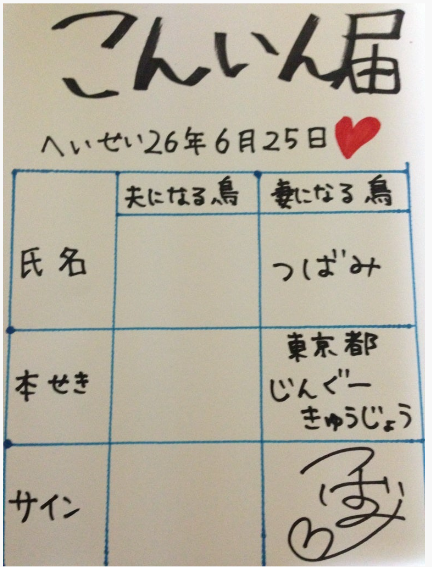 こんいん届
へいせい26年6月25日
夫になる鳥 妻になる鳥
氏名 つばみ
本せき 東京都
じんぐー
きゅうじょう
サイン つばみ